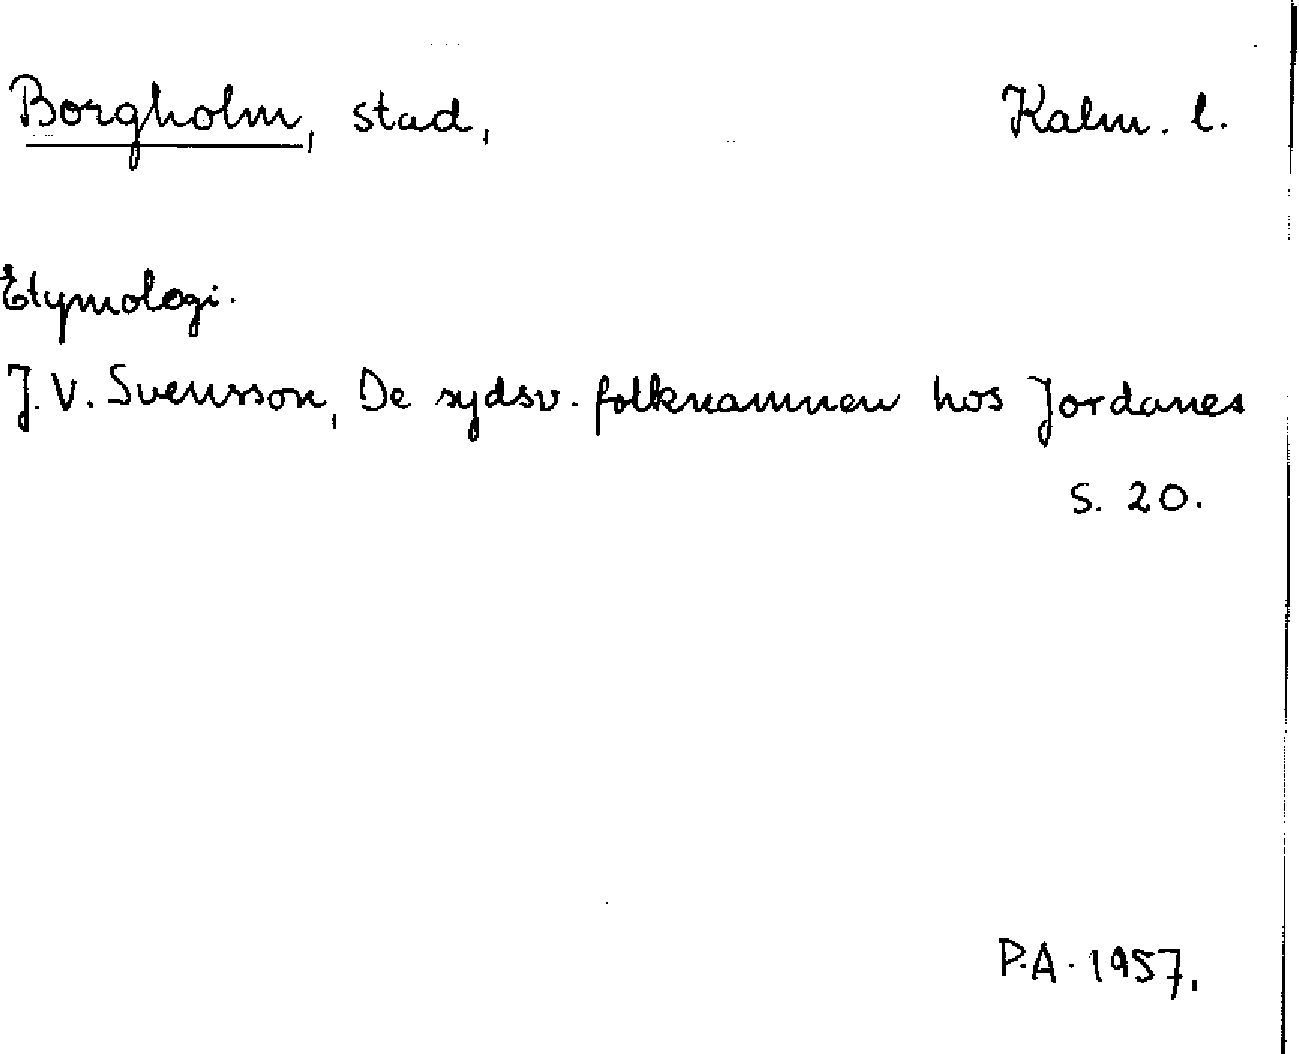 Borgholm, stad, Kalm. l.
Etymologi.
J. V. Svensson, De sydsv. folknamnen hos Jordanes
s. 20.
P.A. 1957.